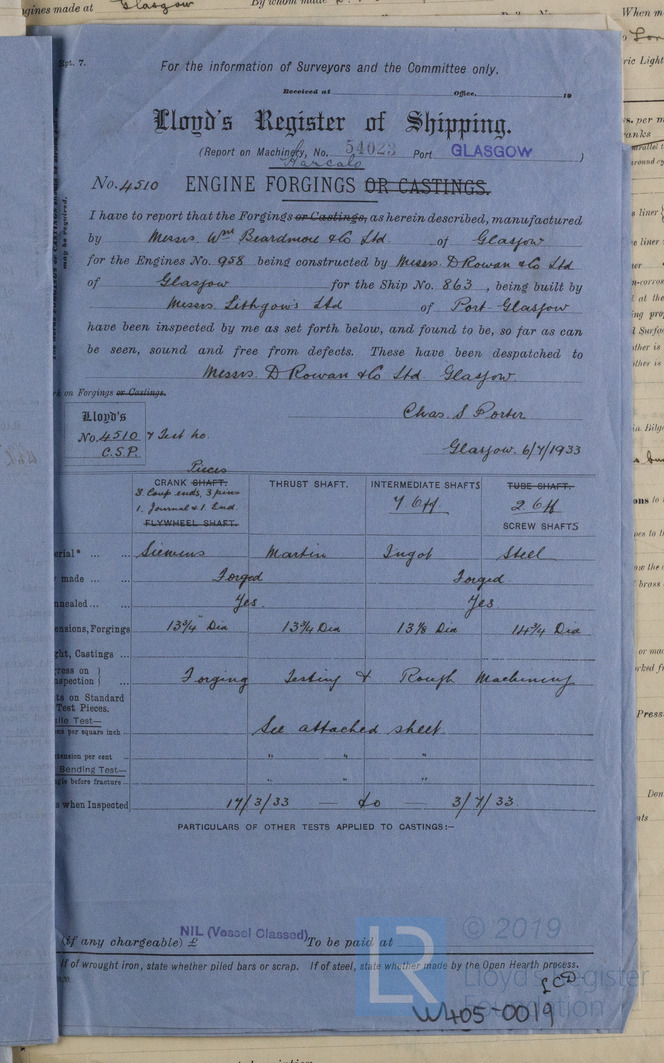 gines made at Glasgow By whom made
When m
Rpt. 7.
For the information of Surveyors and the Committee only.
Received at Office, 19
Lloyd's Register of Shipping.
(Report on Machinery, No. 54023 Port GLASGOW )
Harcalo
No. 4510 ENGINE FORGINGS OR CASTINGS.
I have to report that the Forgings or Castings, as herein described, manufactured
by Messrs. Wm Beardmore & Co Ltd. of Glasgow
for the Engines No. 958 being constructed by Messrs. D Rowan & Co Ltd
of Glasgow for the Ship No. 863, being built by
Messrs. Lithgow's Ltd of Port Glasgow
have been inspected by me as set forth below, and found to be, so far as can
be seen, sound and free from defects. These have been despatched to
Messrs. D Rowan & Co Ltd. Glasgow.
k on Forgings or Castings.
Chas. S Porter
Lloyd's
No. 4510 & Test No.
C.S.P.
Glasgow. 6/7/1933
Pieces
CRANK SHAFT. THRUST SHAFT. INTERMEDIATE SHAFTS TUBE SHAFT.
3 Coup ends, 3 pins
1. Journal & 1. End. 7 Off. 2 Off
FLYWHEEL SHAFT. SCREW SHAFTS
erial* ... ... Siemens Martin Ingot Steel
made ... ... Forged Forged
nnealed ... ... Yes. Yes
ensions, Forgings 13¾" Dia 13¾ Dia 13⅛ Dia 14¾ Dia
ght, Castings ...
ress on
nspection } ... Forging Testing & Rough Machining
ts on Standard
Test Pieces.
ile Test—
ns per square inch ... See attached sheet.
tension per cent ... " " "
Bending Test—
gle before fracture ... " " "
s when Inspected 17/3/33 — to — 3/7/33.
PARTICULARS OF OTHER TESTS APPLIED TO CASTINGS:—
NIL (Vessel Classed)
(if any chargeable) £ To be paid at
If of wrought iron, state whether piled bars or scrap. If of steel, state whether made by the Open Hearth process.
LR © 2019
Lloyd's Register
Foundation
W405-0019